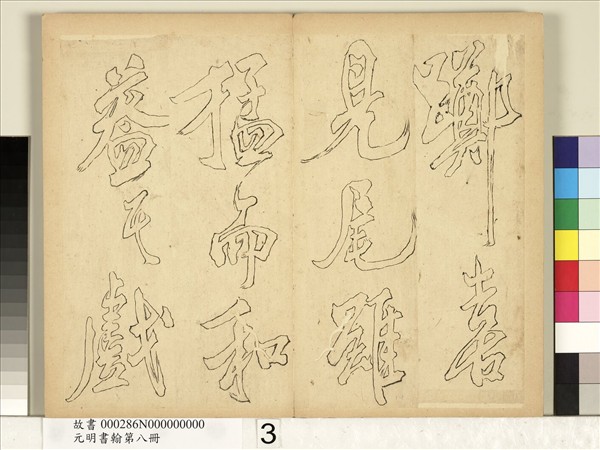 躑喜
見尾雖
猛而和
蓋其戲
故書 000286N000000000
元明書翰第八冊
3